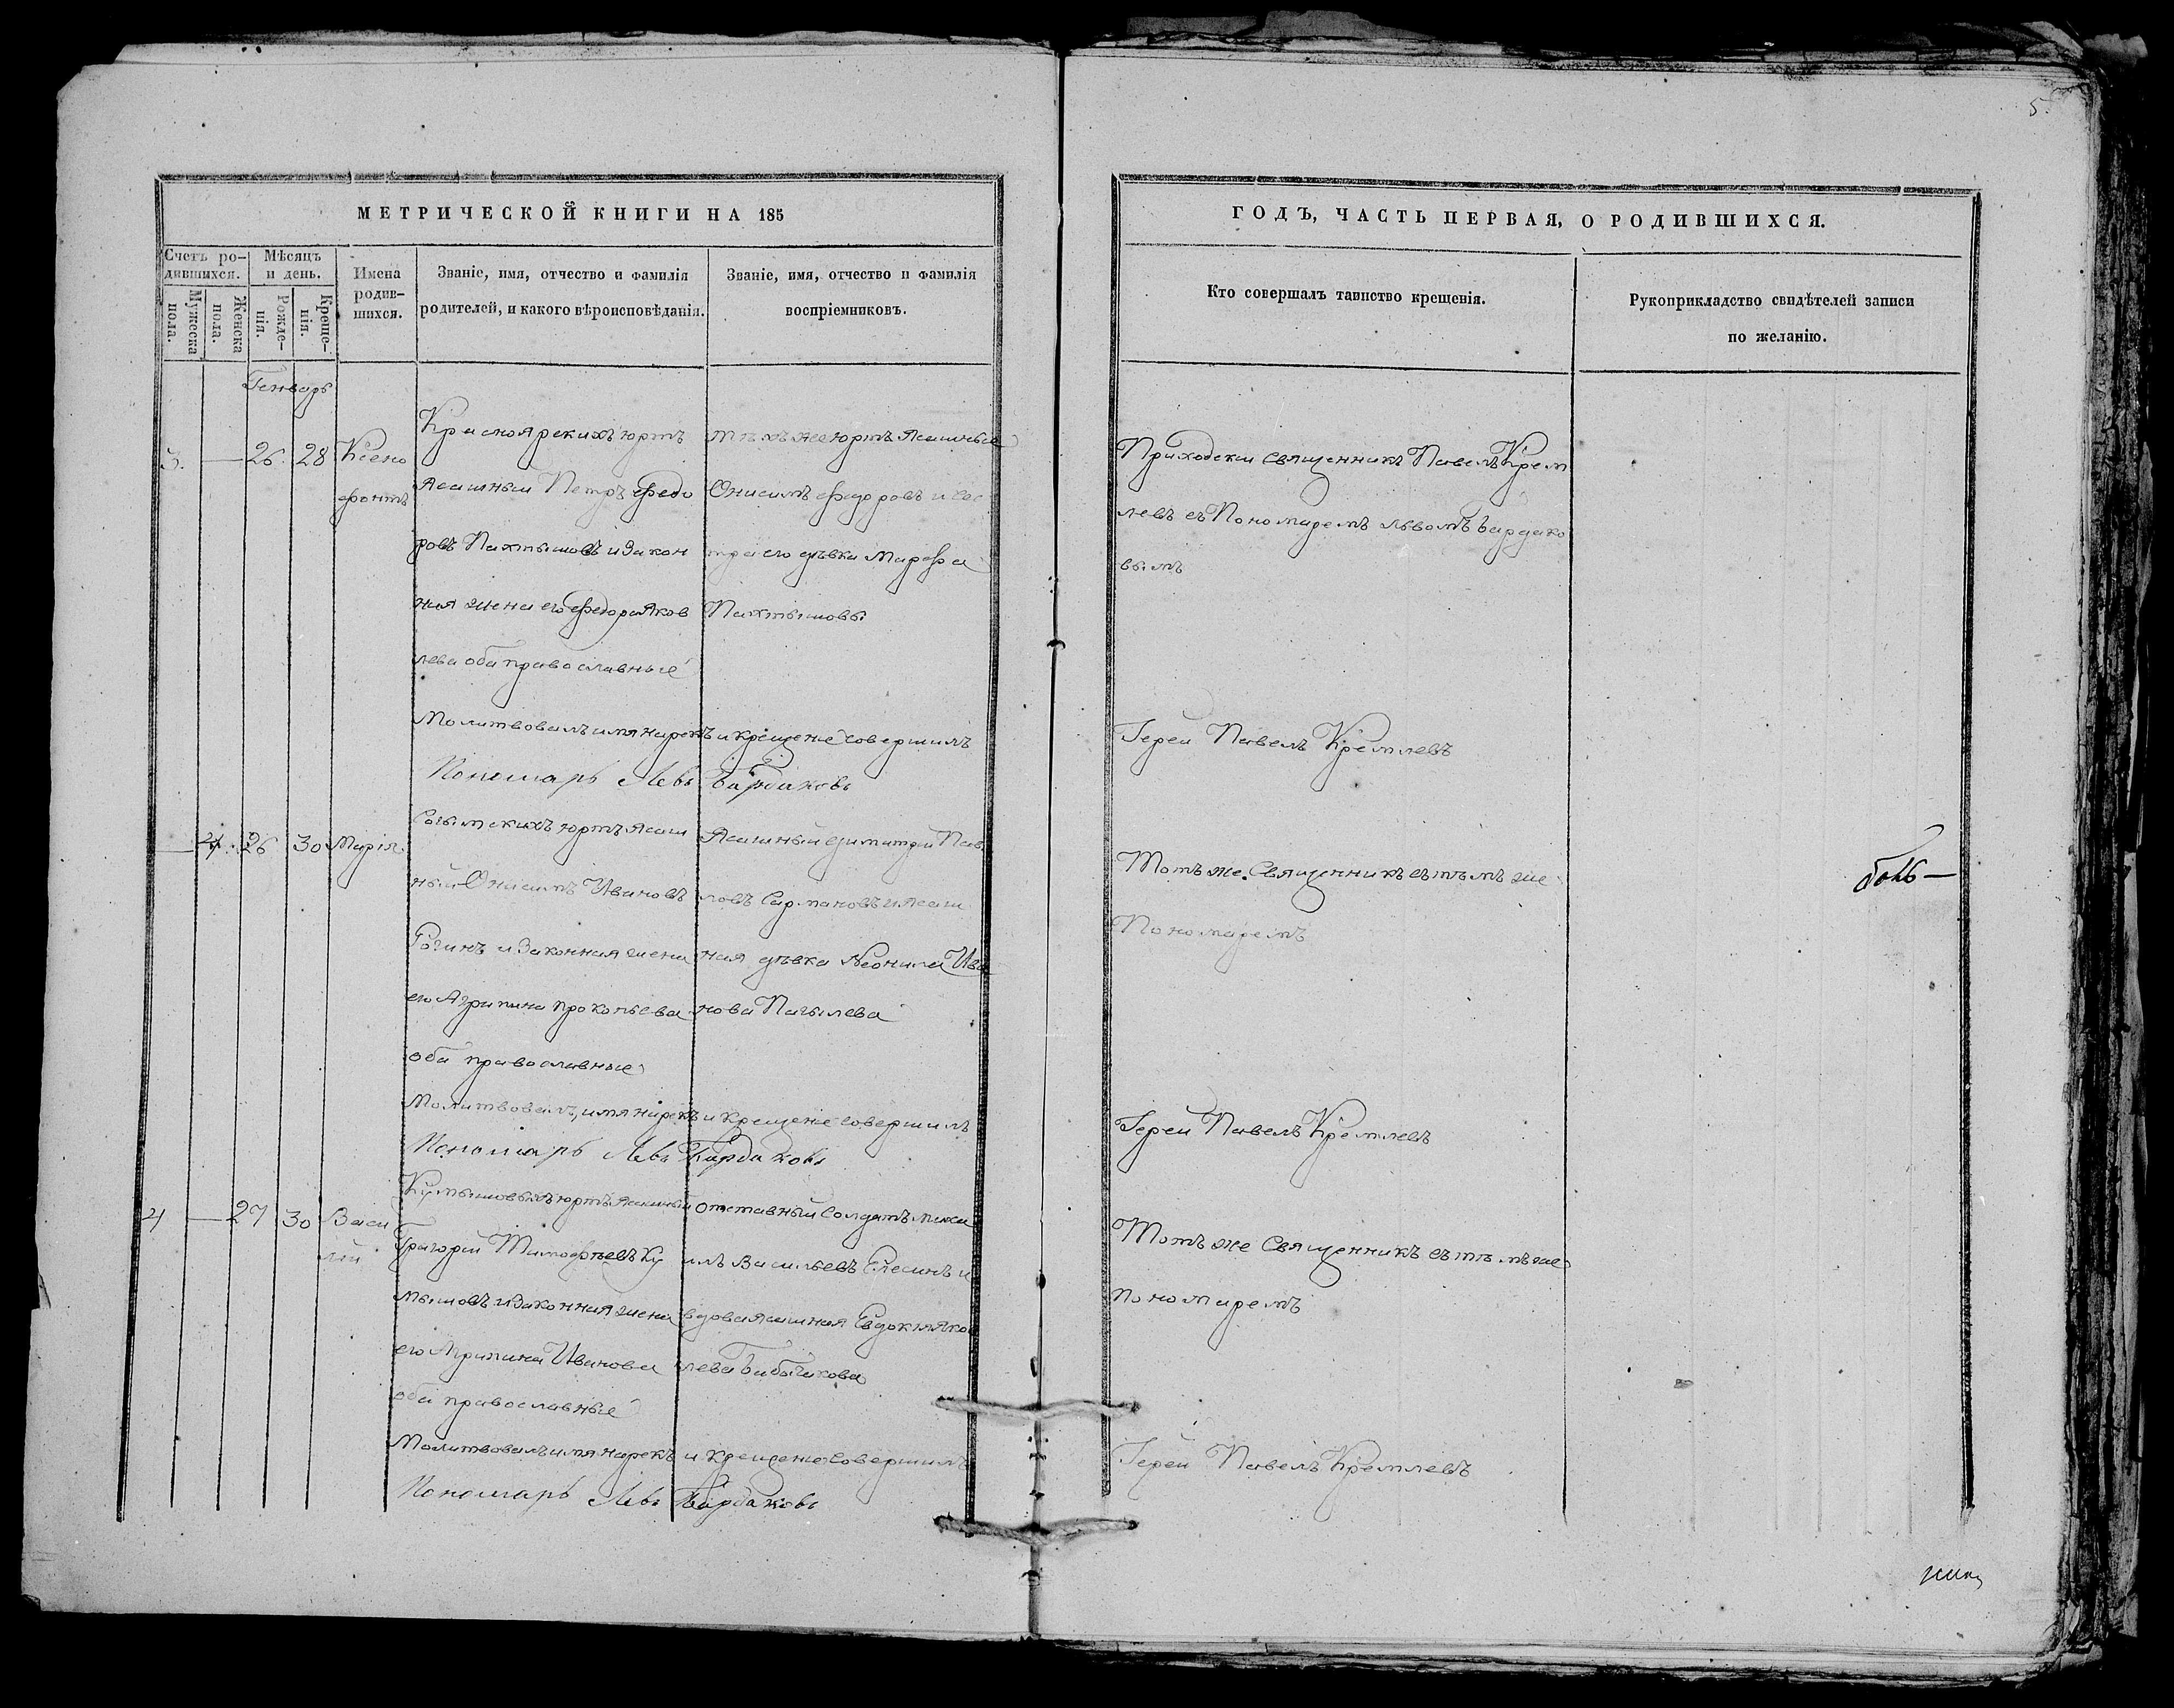 5.
МЕТРИЧЕСКОЙ КНИГИ НА 185
Счетъ ро-
дившихся.
Мужеска
пола.
Женска
пола.
Мѣсяцъ
и день.
Рожде-
нія.
Креще-
нія.
Имена
родив-
шихся.
Званіе, имя, отчество и фамилія
родителей, и какого вѣроисповѣданія.
Званіе, имя, отчество и фамилія
воспріемниковъ.
ГОДЪ, ЧАСТЬ ПЕРВАЯ, О РОДИВШИХСЯ.
Кто совершалъ таинство крещенія.
Рукоприкладство свидѣтелей записи
по желанію.
Генварь
3. — 26. 28 Ксено
фонтъ
Красноярскихъ юртъ
Ясашный Петръ Федо
ровъ Пахтышовъ и закон
ная жена его Федора Яков
лева оба православные
тѣхъ же юртъ Ясашные
Онисимъ Федоровъ и сес
тра его дѣвка Марфа
Пахтышовы
Приходскій Священникъ Павелъ Крем
левъ съ Пономаремъ Львомъ Бардако
вымъ
Молитвовалъ имя нарекъ и крещеніе совершилъ
Іерей Павелъ Кремлевъ
Пономарь Левъ Бардаковъ
— 4. 26 30 Марія
юртъ Ясаш
ный Онисимъ Ивановъ
и законная жена
его Агрипина Прокопьева
оба православные
Ясашный Димитрій Пав
ловъ Сармановъ и Ясаш
ная дѣвка Неонила Ива
нова
Тотъ же Священникъ съ тѣмъ же
Пономаремъ
Молитвовалъ, имя нарекъ и крещеніе совершилъ
Іерей Павелъ Кремлевъ
Пономарь Левъ Бардаковъ
4 — 27 30 Васи
лій
юртъ Ясашный
Григорій Тимофѣевъ Ку
мышовъ и законная жена
его Агрипина Иванова
оба православные
отставный Солдатъ
Васильевъ и
вдова Ясашная Евдокія Яков
лева
Тотъ же Священникъ съ тѣмъ же
пономаремъ
Молитвовалъ имя нарекъ и крещеніе совершилъ
Іерей Павелъ Кремлевъ
Пономарь Левъ Бардаковъ